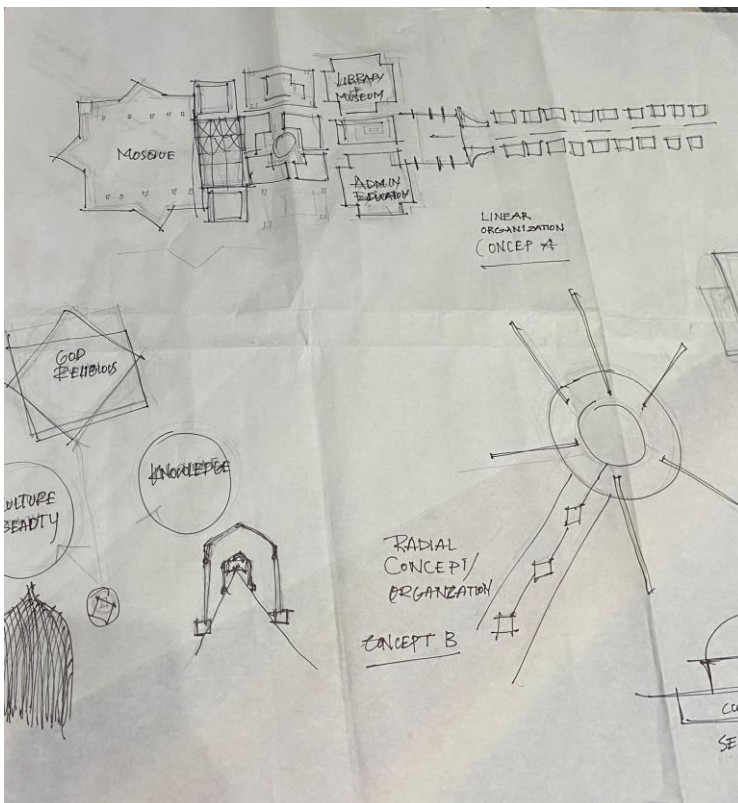 LIBRARY
MUSEUM
MOSQUE
ADMIN
EDUCATION
LINEAR
ORGANIZATION
CONCEP A
GOD
RELIGIOUS
KNOWLEDGE
CULTURE
BEAUTY
RADIAL
CONCEPT/
ORGANZATION
CONCEPT B
CU
SE